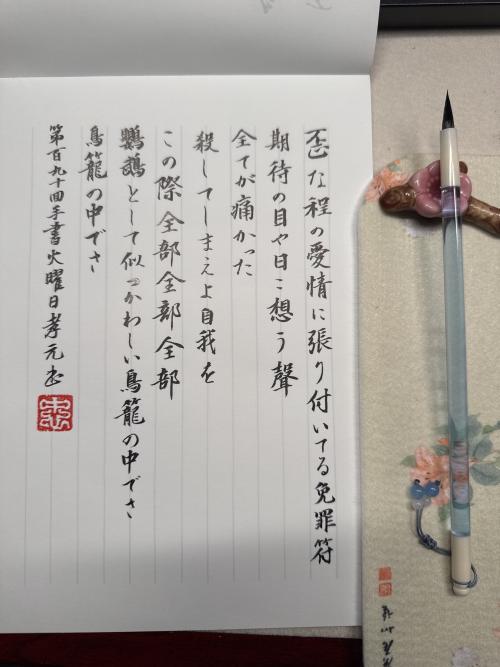 歪な程の愛情に張り付いてる免罪符
期待の目や日々想う聲
全てが痛かった
殺してしまえよ自我を
この際全部全部全部
鸚鵡として似つかわしい鳥籠の中でさ
鳥籠の中でさ
第百九十回手書火曜日孝元书